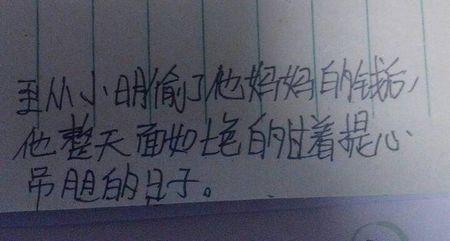 至从小明偷了他妈妈的钱后,
他整天面如土色的过着提心
吊胆的日子。